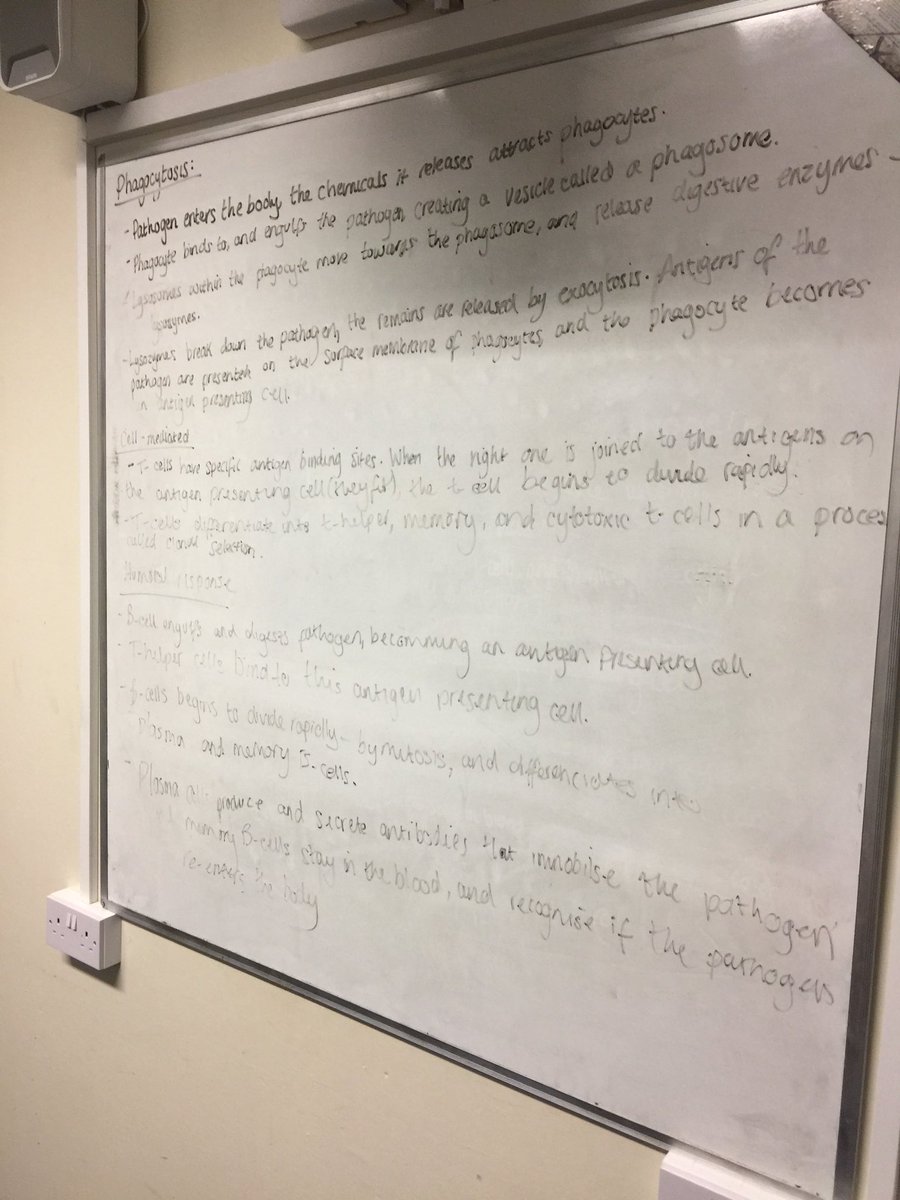 Phagocytosis:
- Pathogen enters the body, the chemicals it releases attracts phagocytes.
- Phagocyte binds to, and engulfs the pathogen, creating a vesicle called a phagosome.
- Lysosomes within the phagocyte move towards the phagosome, and release digestive enzymes -
lysozymes.
- Lysozymes break down the pathogen, the remains are released by exocytosis. Antigens of the
pathogen are presented on the surface membrane of phagocytes, and the phagocyte becomes
an antigen presenting cell.
Cell-mediated
- T-cells have specific antigen binding sites. When the right one is joined to the antigens on
the antigen presenting cell (they fit), the t cell begins to divide rapidly.
- T-cells differentiate into t-helper, memory, and cytotoxic t-cells in a process
called clonal selection.
Humoral response
- B-cell engulfs and digests pathogen, becomming an antigen presenting cell.
- T-helper cells bind to this antigen presenting cell.
- B-cells begins to divide rapidly - by mitosis, and differenciates into
plasma and memory B-cells.
- Plasma cells produce and secrete antibodies that immobilse the pathogen
memory B-cells stay in the blood, and recognise if the pathogen
re-enters the body